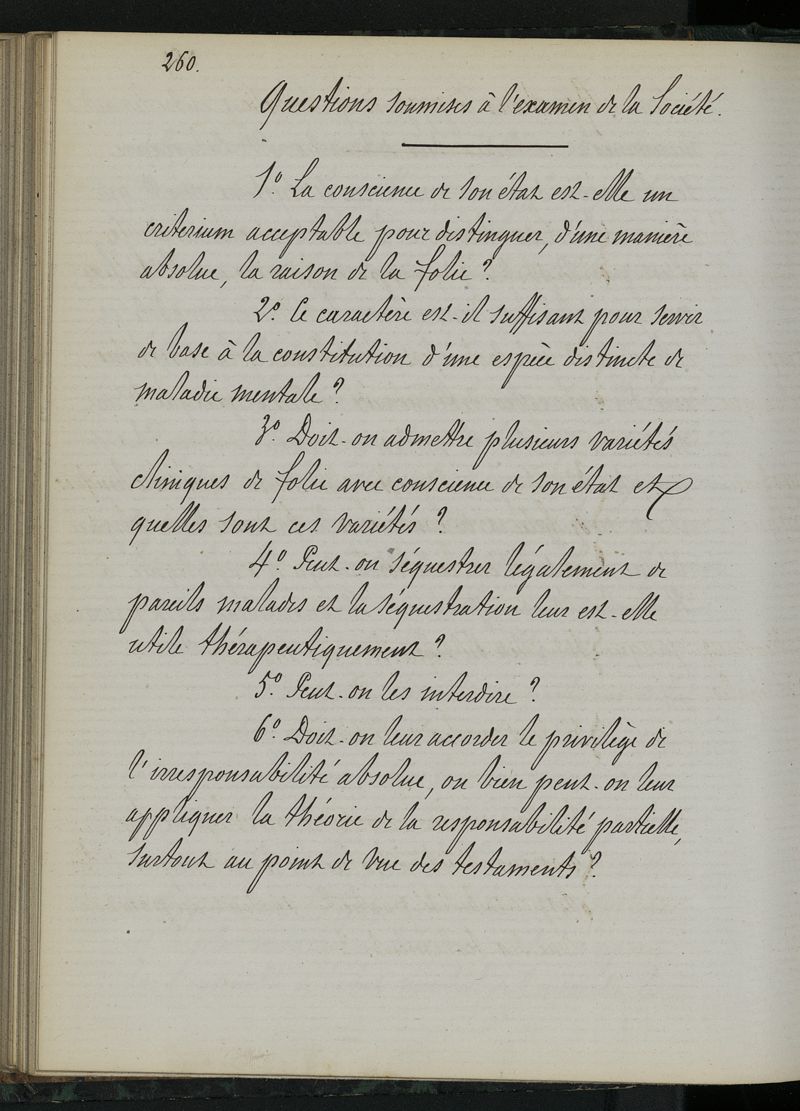 260.
Questions soumises à l'examen de la Société.
1º. La conscience de son état est-elle un
criterium acceptable pour distinguer, d'une manière
absolue, la raison de la folie ?
2º. Ce caractère est-il suffisant pour servir
de base à la constitution d'une espèce distincte de
maladie mentale ?
3º. Doit-on admettre plusieurs variétés
cliniques de folie avec conscience de son état et
quelles sont ces variétés ?
4º. Peut-on séquestrer légalement de
pareils malades et la séquestration leur est-elle
utile thérapeutiquement ?
5º. Peut-on les interdire ?
6º. Doit-on leur accorder le privilège de
l'irresponsabilité absolue, ou bien peut-on leur
appliquer la théorie de la responsabilité partielle,
surtout au point de vue des testaments ?